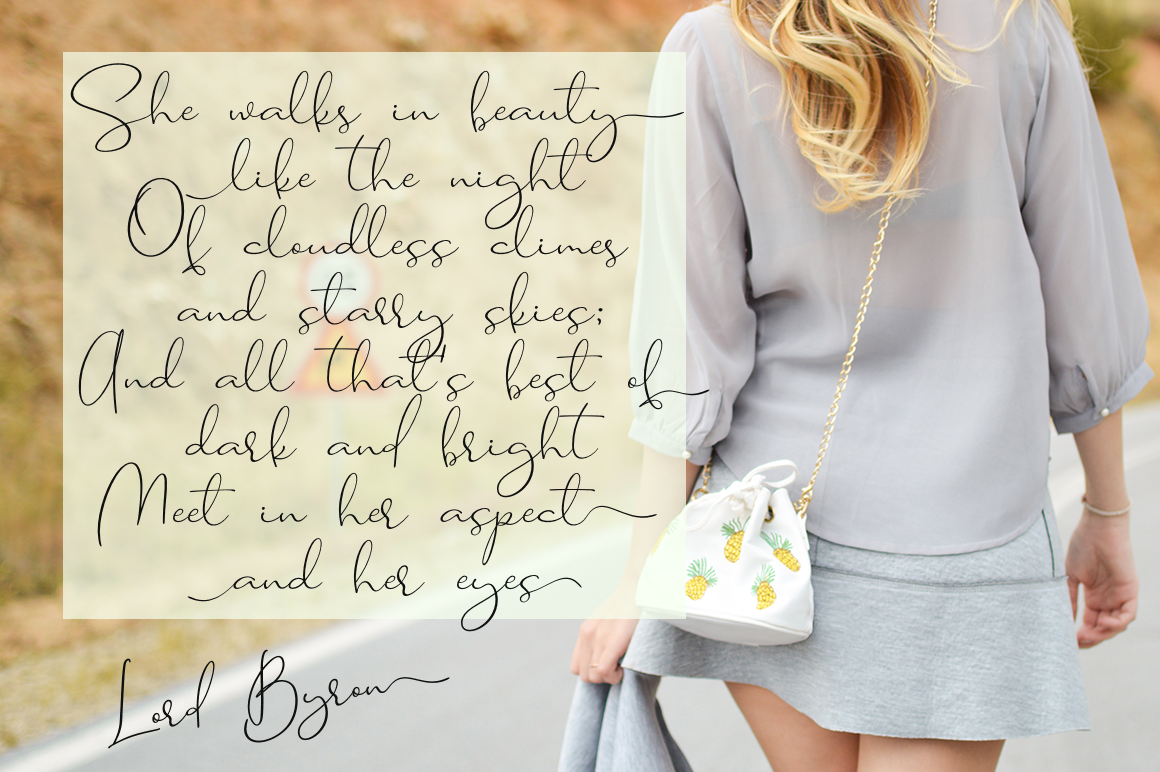 She walks in beauty
like the night
Of cloudless climes
and starry skies;
And all that's best of
dark and bright
Meet in her aspect
and her eyes
Lord Byron